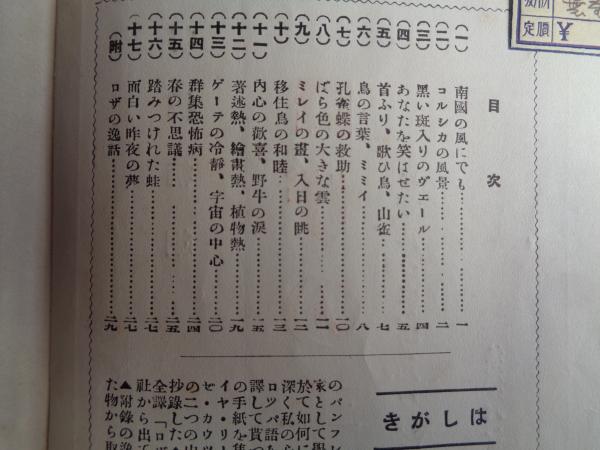 目次
(一) 南國の風にでも……一
(二) コルシカの風景……二
(三) 黒い斑入りのヴェール……四
(四) あなたを笑はせたい……五
(五) 首ふり、歌ひ鳥、山雀……七
(六) 鳥の言葉、ミミイ……八
(七) 孔雀蝶の救助……一〇
(八) ばら色の大きな雲……一一
(九) ミレイの畫、入日の眺……一二
(十) 移住鳥の和睦……一三
(十一) 内心の歡喜、野牛の涙……一五
(十二) 著述熱、繪畫熱、植物熱……一九
(十三) ゲーテの冷靜、宇宙の中心……二〇
(十四) 群集恐怖病……二四
(十五) 春の不思議……二五
(十六) 踏みつけれた蛙……二七
(十七) 面白い昨夜の夢……二七
(附) ロザの逸話……二九
はしがき
のパンフレ
家として與
於て如何に
深く私のら
ロツパ語を
譯して貰つ
の手紙を集
イヤ・リー
ゼ・カウツ
の二つの
抄錄した
全譯「ロザ
社から出て
▲附錄の逸
た物から取
定價
¥